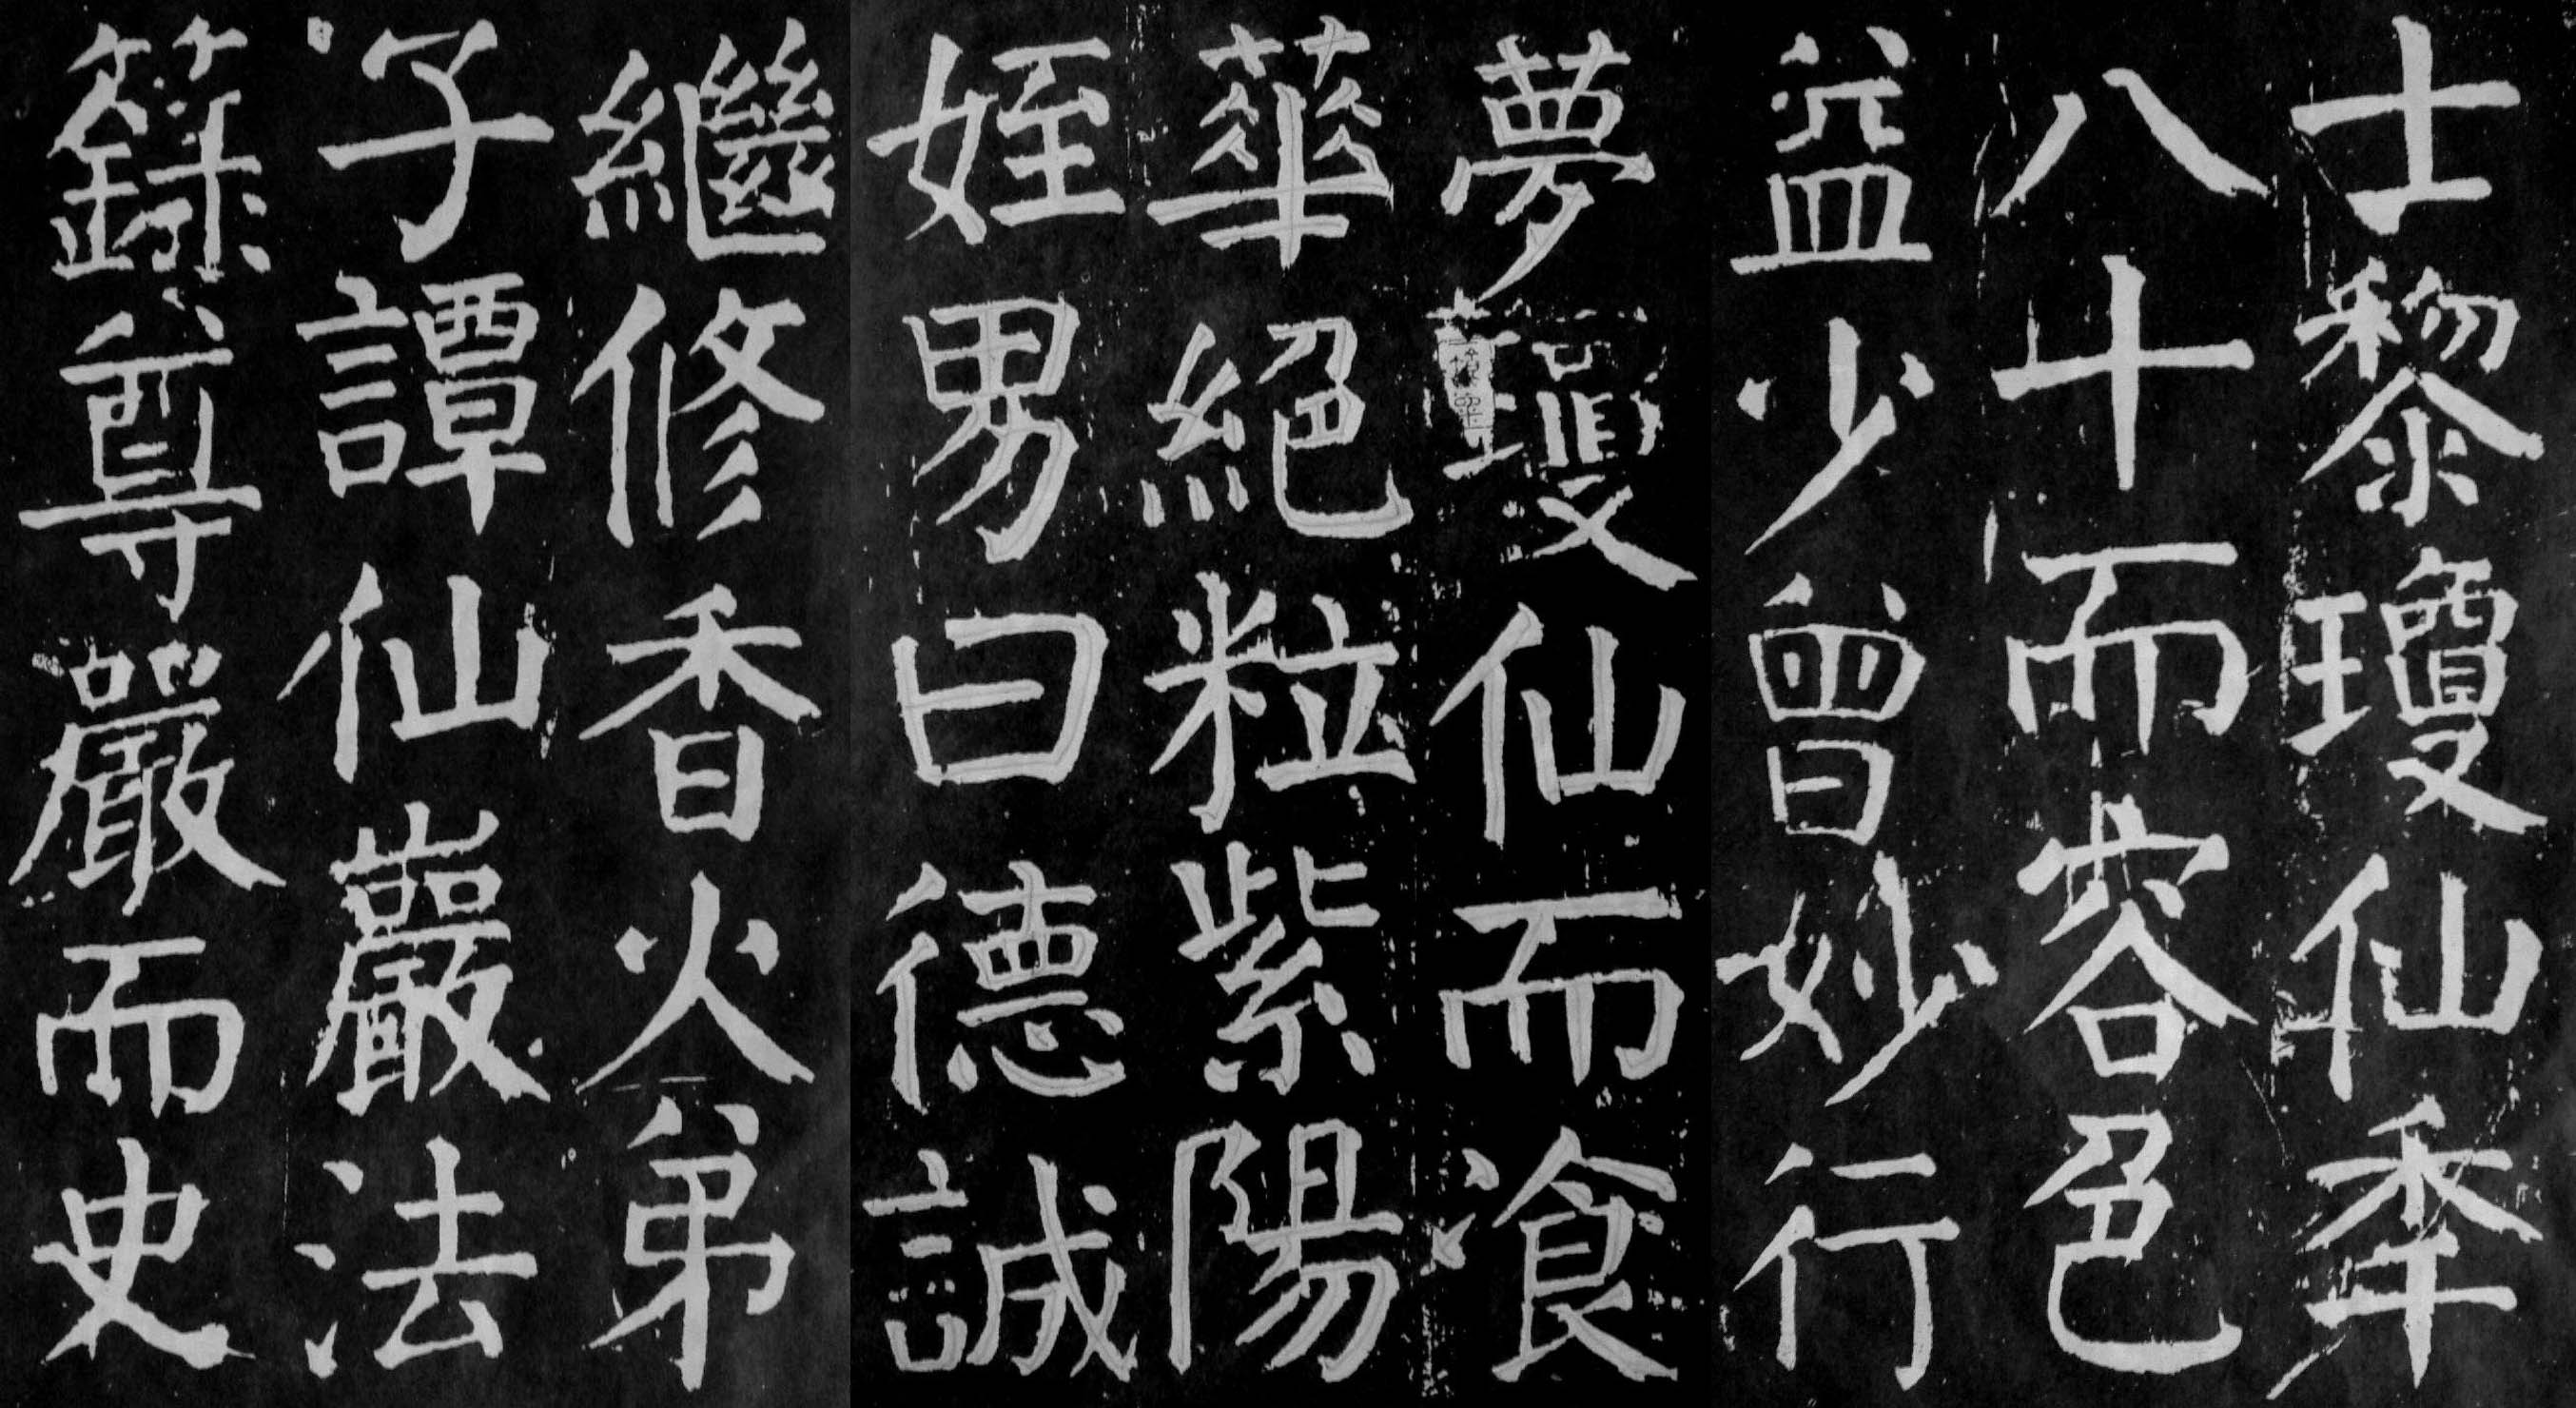 士黎瓊仙秊
八十而容色
益少曾妙行
夢瓊仙而飡
華絕粒紫陽
姪男曰德誠
繼修香火弟
子譚仙巖法
籙尊嚴而史